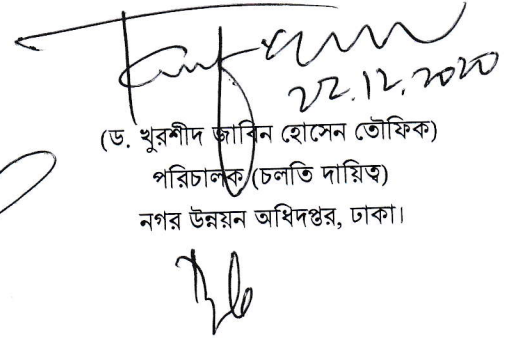 22.12.2020
(ড. খুরশীদ জাবিন হোসেন তৌফিক)
পরিচালক (চলতি দায়িত্ব)
নগর উন্নয়ন অধিদপ্তর, ঢাকা।